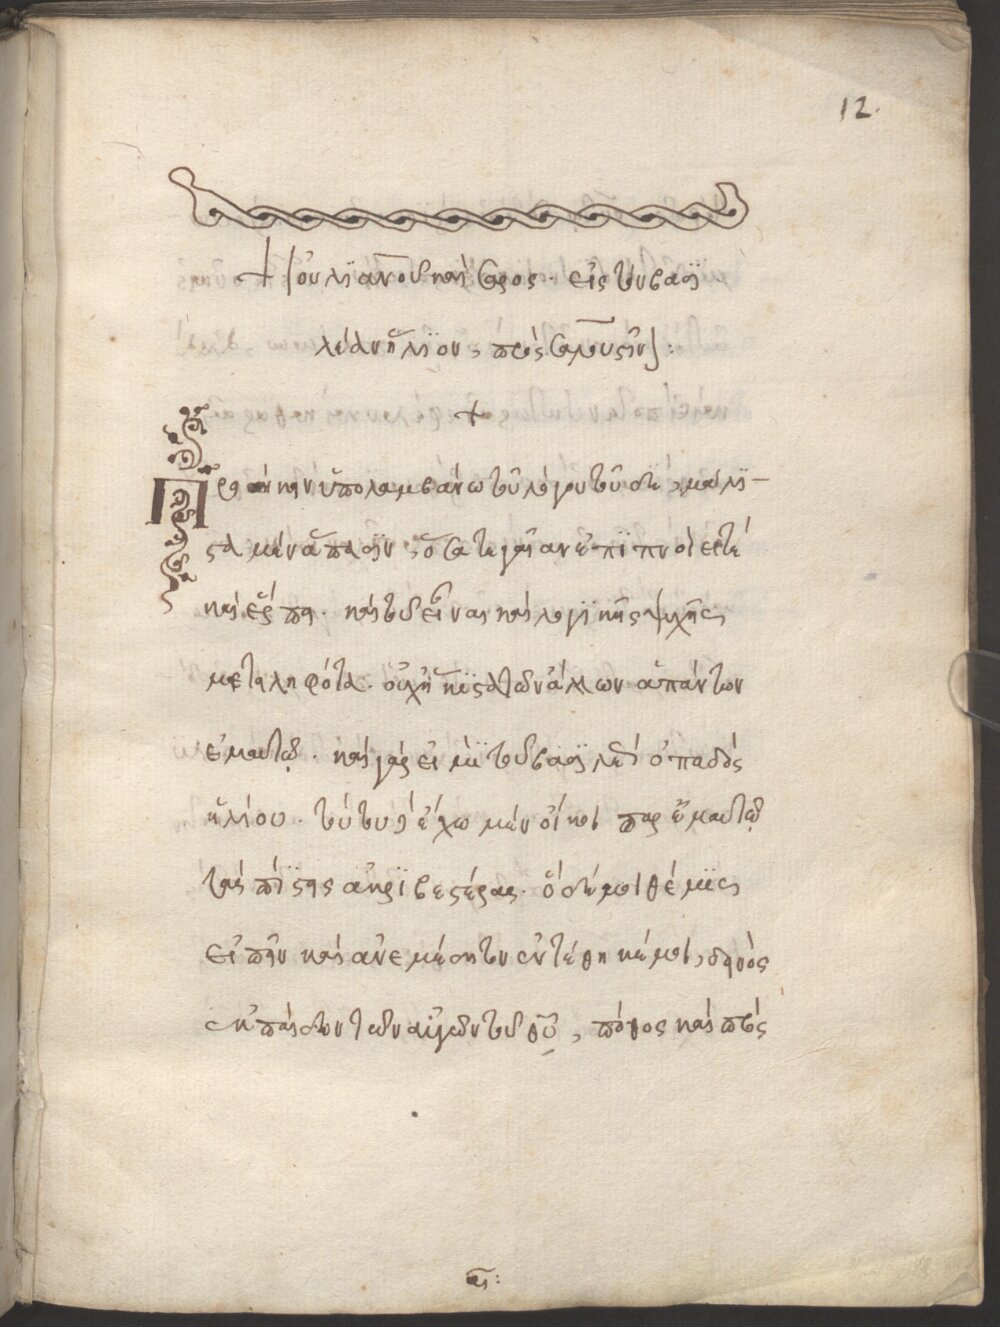 12.
+ Ἰουλϊανοῦ καίσαρος. εἰς τὸν βασϊ
λέα ἥλϊον, πρὸς σαλούστιον:
+
Προσήκην ὑπολαμβάνω τοῦ λόγου τοῦδε, μάλϊ-
στα μὲν ἅπασϊν, ὅσα τε γαῖαν ἐπϊπνοίει τέ
καὶ ἕρπει. καὶ τοῦ εἶναι καὶ λογϊκῆς ψυχῆς
μεταληφότα. οὐχ ἥκϊστα τῶν ἄλλων ἁπάντων
ἐμαυτῷ. καὶ γάρ εἰμϊ τοῦ βασϊλέως ὀπαδὸς
ἡλίου. τούτου δ' ἔχω μὲν οἴκοι παρ' ἐμαυτῷ
τὰς πίστεις ἀκρϊβεστέρας. ὃ δέ μοι θέμϊς
εἰπεῖν καὶ ἀνεμέσητον ἐντέθηκέ μοι, δεινὸς
ἐκ παίδων τῶν αὐγῶν τοῦ θυ, πόθος καὶ πρὸς